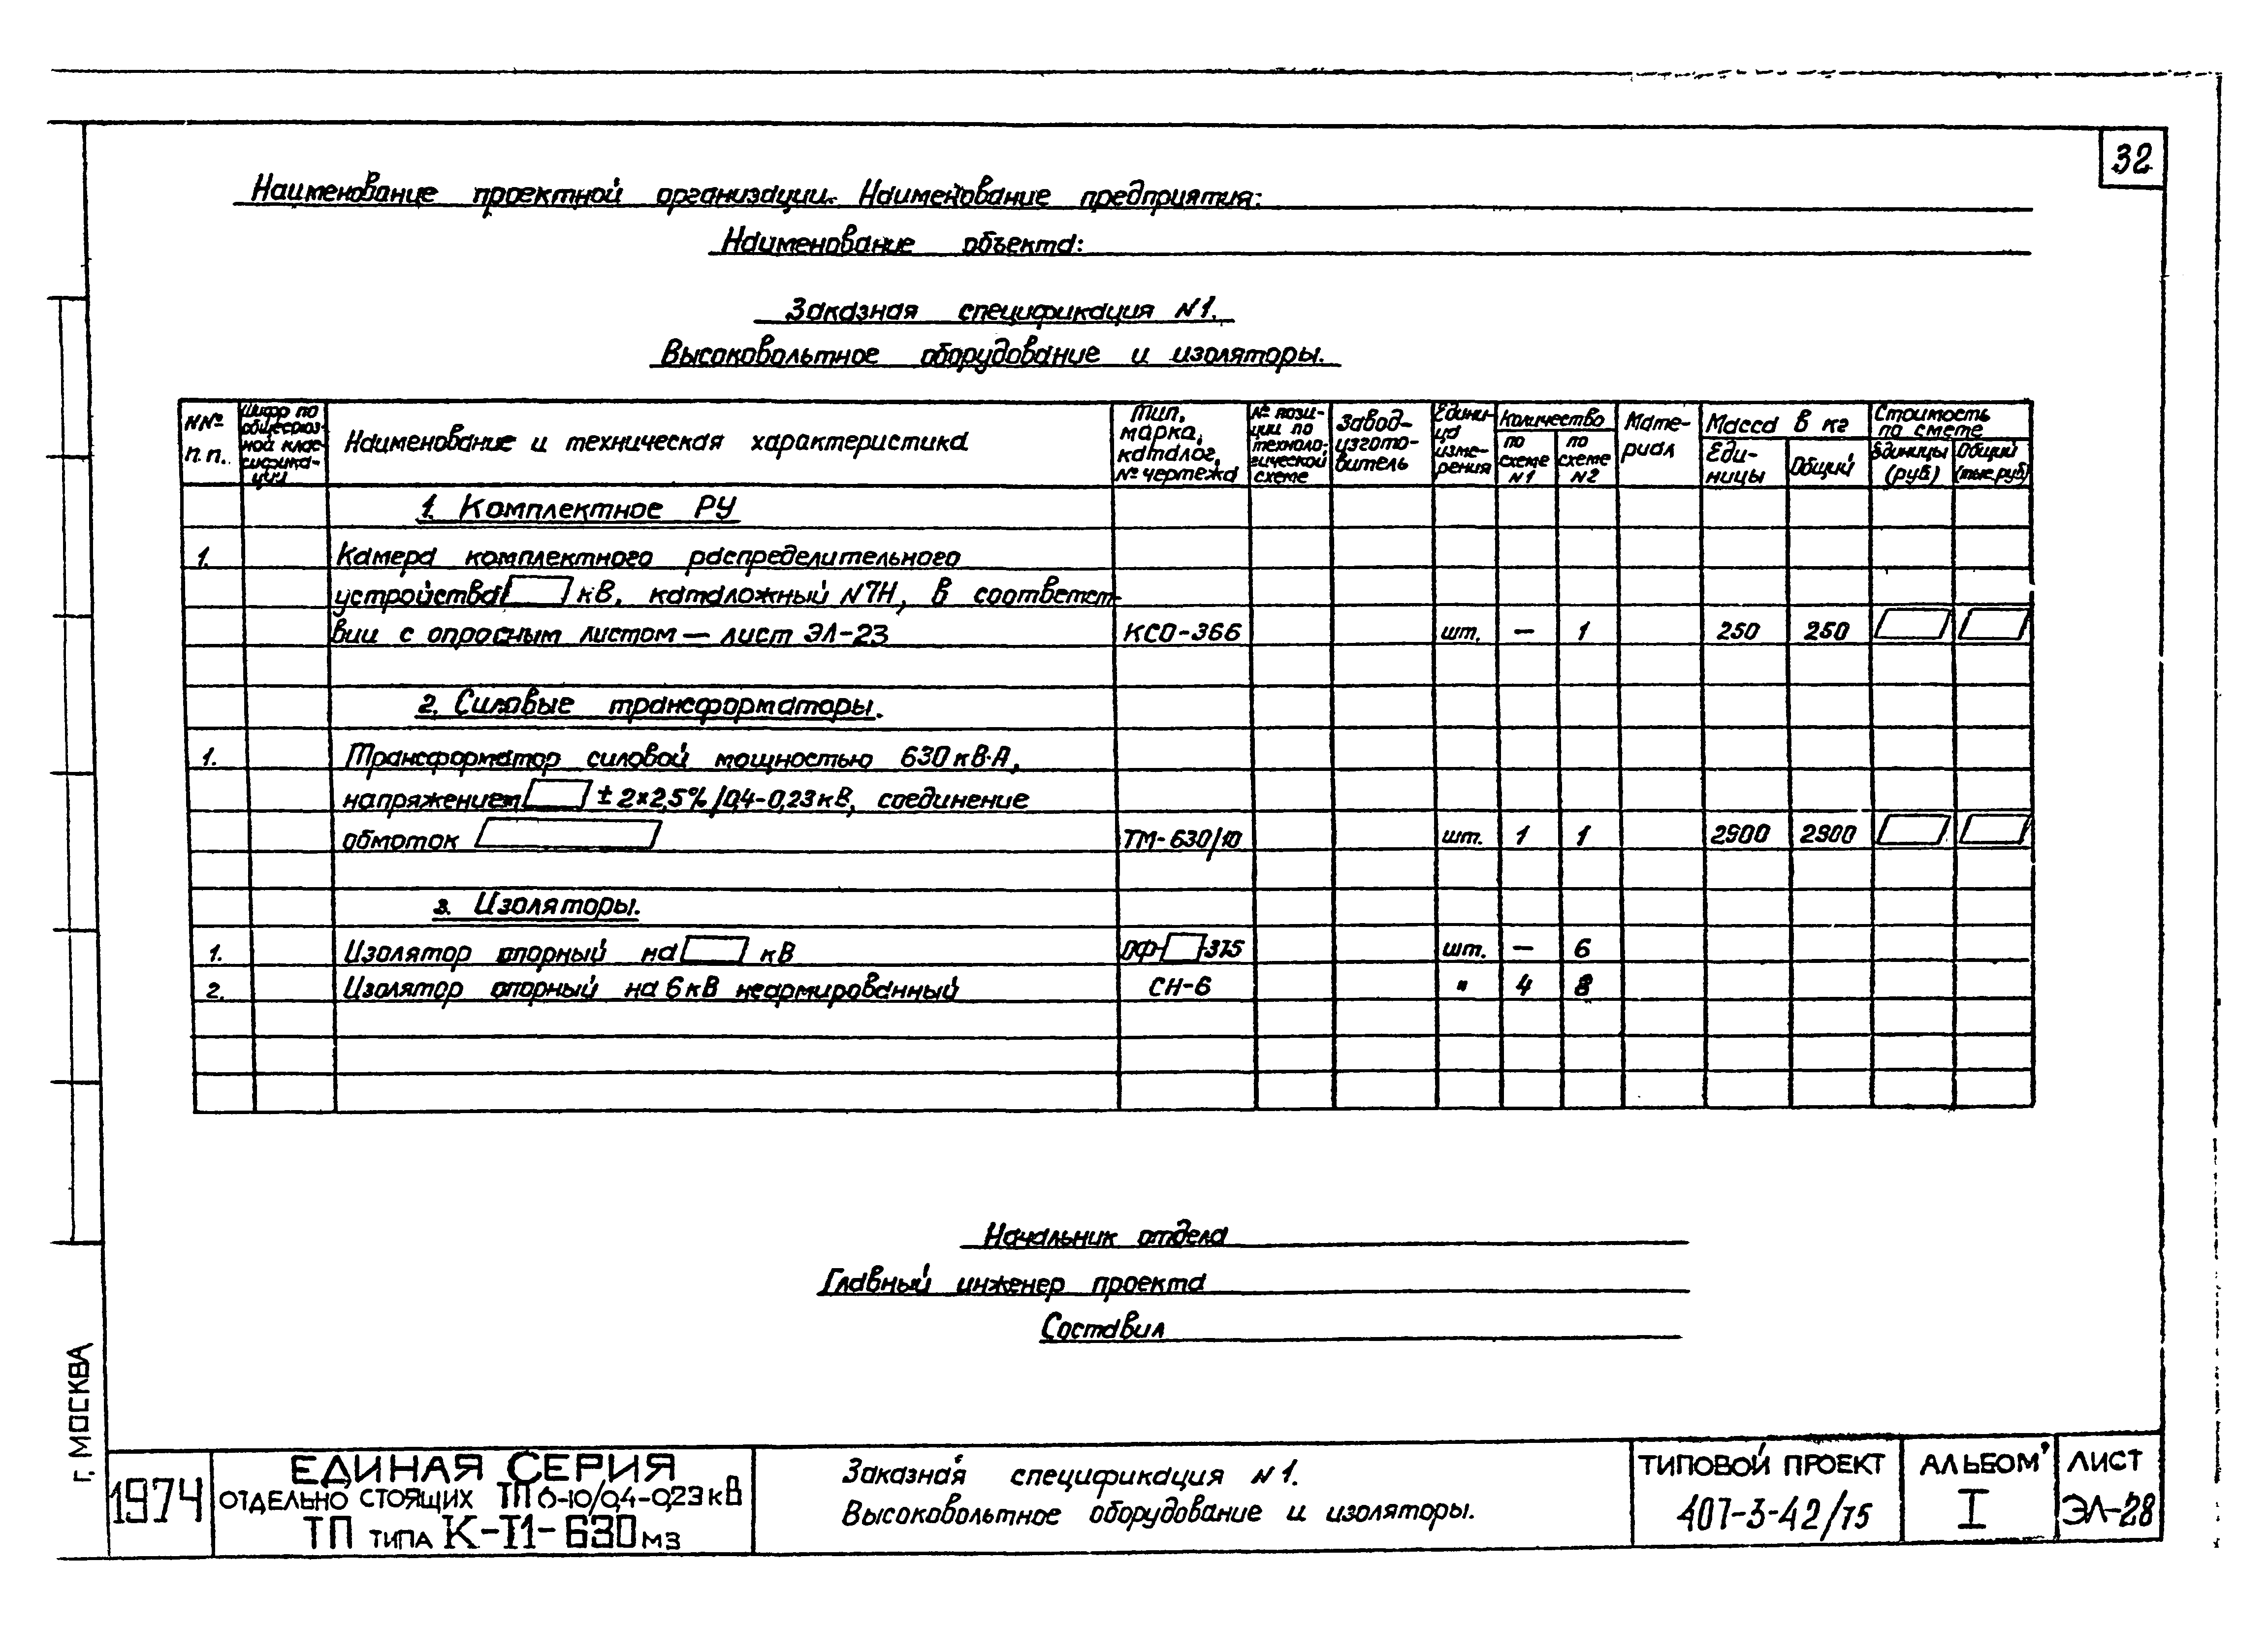 32
Наименование проектной организации. Наименование предприятия:
Наименование объекта:
Заказная спецификация N1.
Высоковольтное оборудование и изоляторы.
NNº п.п.
Шифр по общесоюзной классификации
Наименование и техническая характеристика
Тип, марка, каталог, Nº чертежа
Nº позиции по технологической схеме
Завод-изготовитель
Единица измерения
Количество
по схеме N1
по схеме N2
Материал
Масса в кг
Единицы
Общий
Стоимость по смете
Единицы (руб)
Общий (тыс.руб)
1. Комплектное РУ
1. Камера комплектного распределительного
устройства кВ, каталожный N7Н, в соответст-
вии с опросным листом — лист ЭЛ-23 КСО-366 шт. — 1 250 250
2. Силовые трансформаторы.
1. Трансформатор силовой мощностью 630 кВ·А,
напряжением ± 2×2,5% /0,4-0,23 кВ, соединение
обмоток ТМ-630/10 шт. 1 1 2900 2900
3. Изоляторы.
1. Изолятор опорный на кВ ОФ- -375 шт. — 6
2. Изолятор опорный на 6 кВ неармированный СН-6 " 4 8
Начальник отдела
Главный инженер проекта
Составил
г. МОСКВА
1974
ЕДИНАЯ СЕРИЯ
ОТДЕЛЬНО СТОЯЩИХ ТП 6-10/0,4-0,23 кВ
ТП ТИПА К-I1-630 М3
Заказная спецификация N1.
Высоковольтное оборудование и изоляторы.
ТИПОВОЙ ПРОЕКТ
407-3-42/75
АЛЬБОМ
I
ЛИСТ
ЭЛ-28